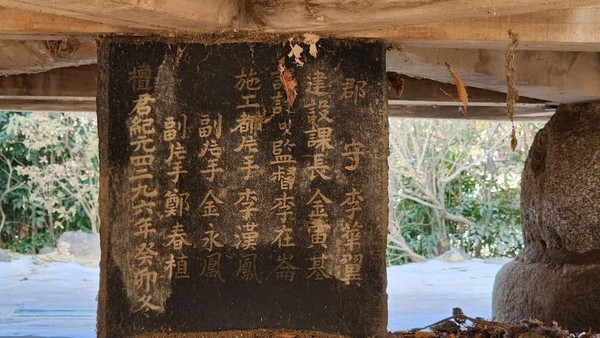 郡 守 李華翼
建設課長 金寅基
設計및監督 李在崙
施工都片手 李漢鳳
副片手 金永鳳
副片手 鄭春植
檀君紀元四二九六年 癸卯冬